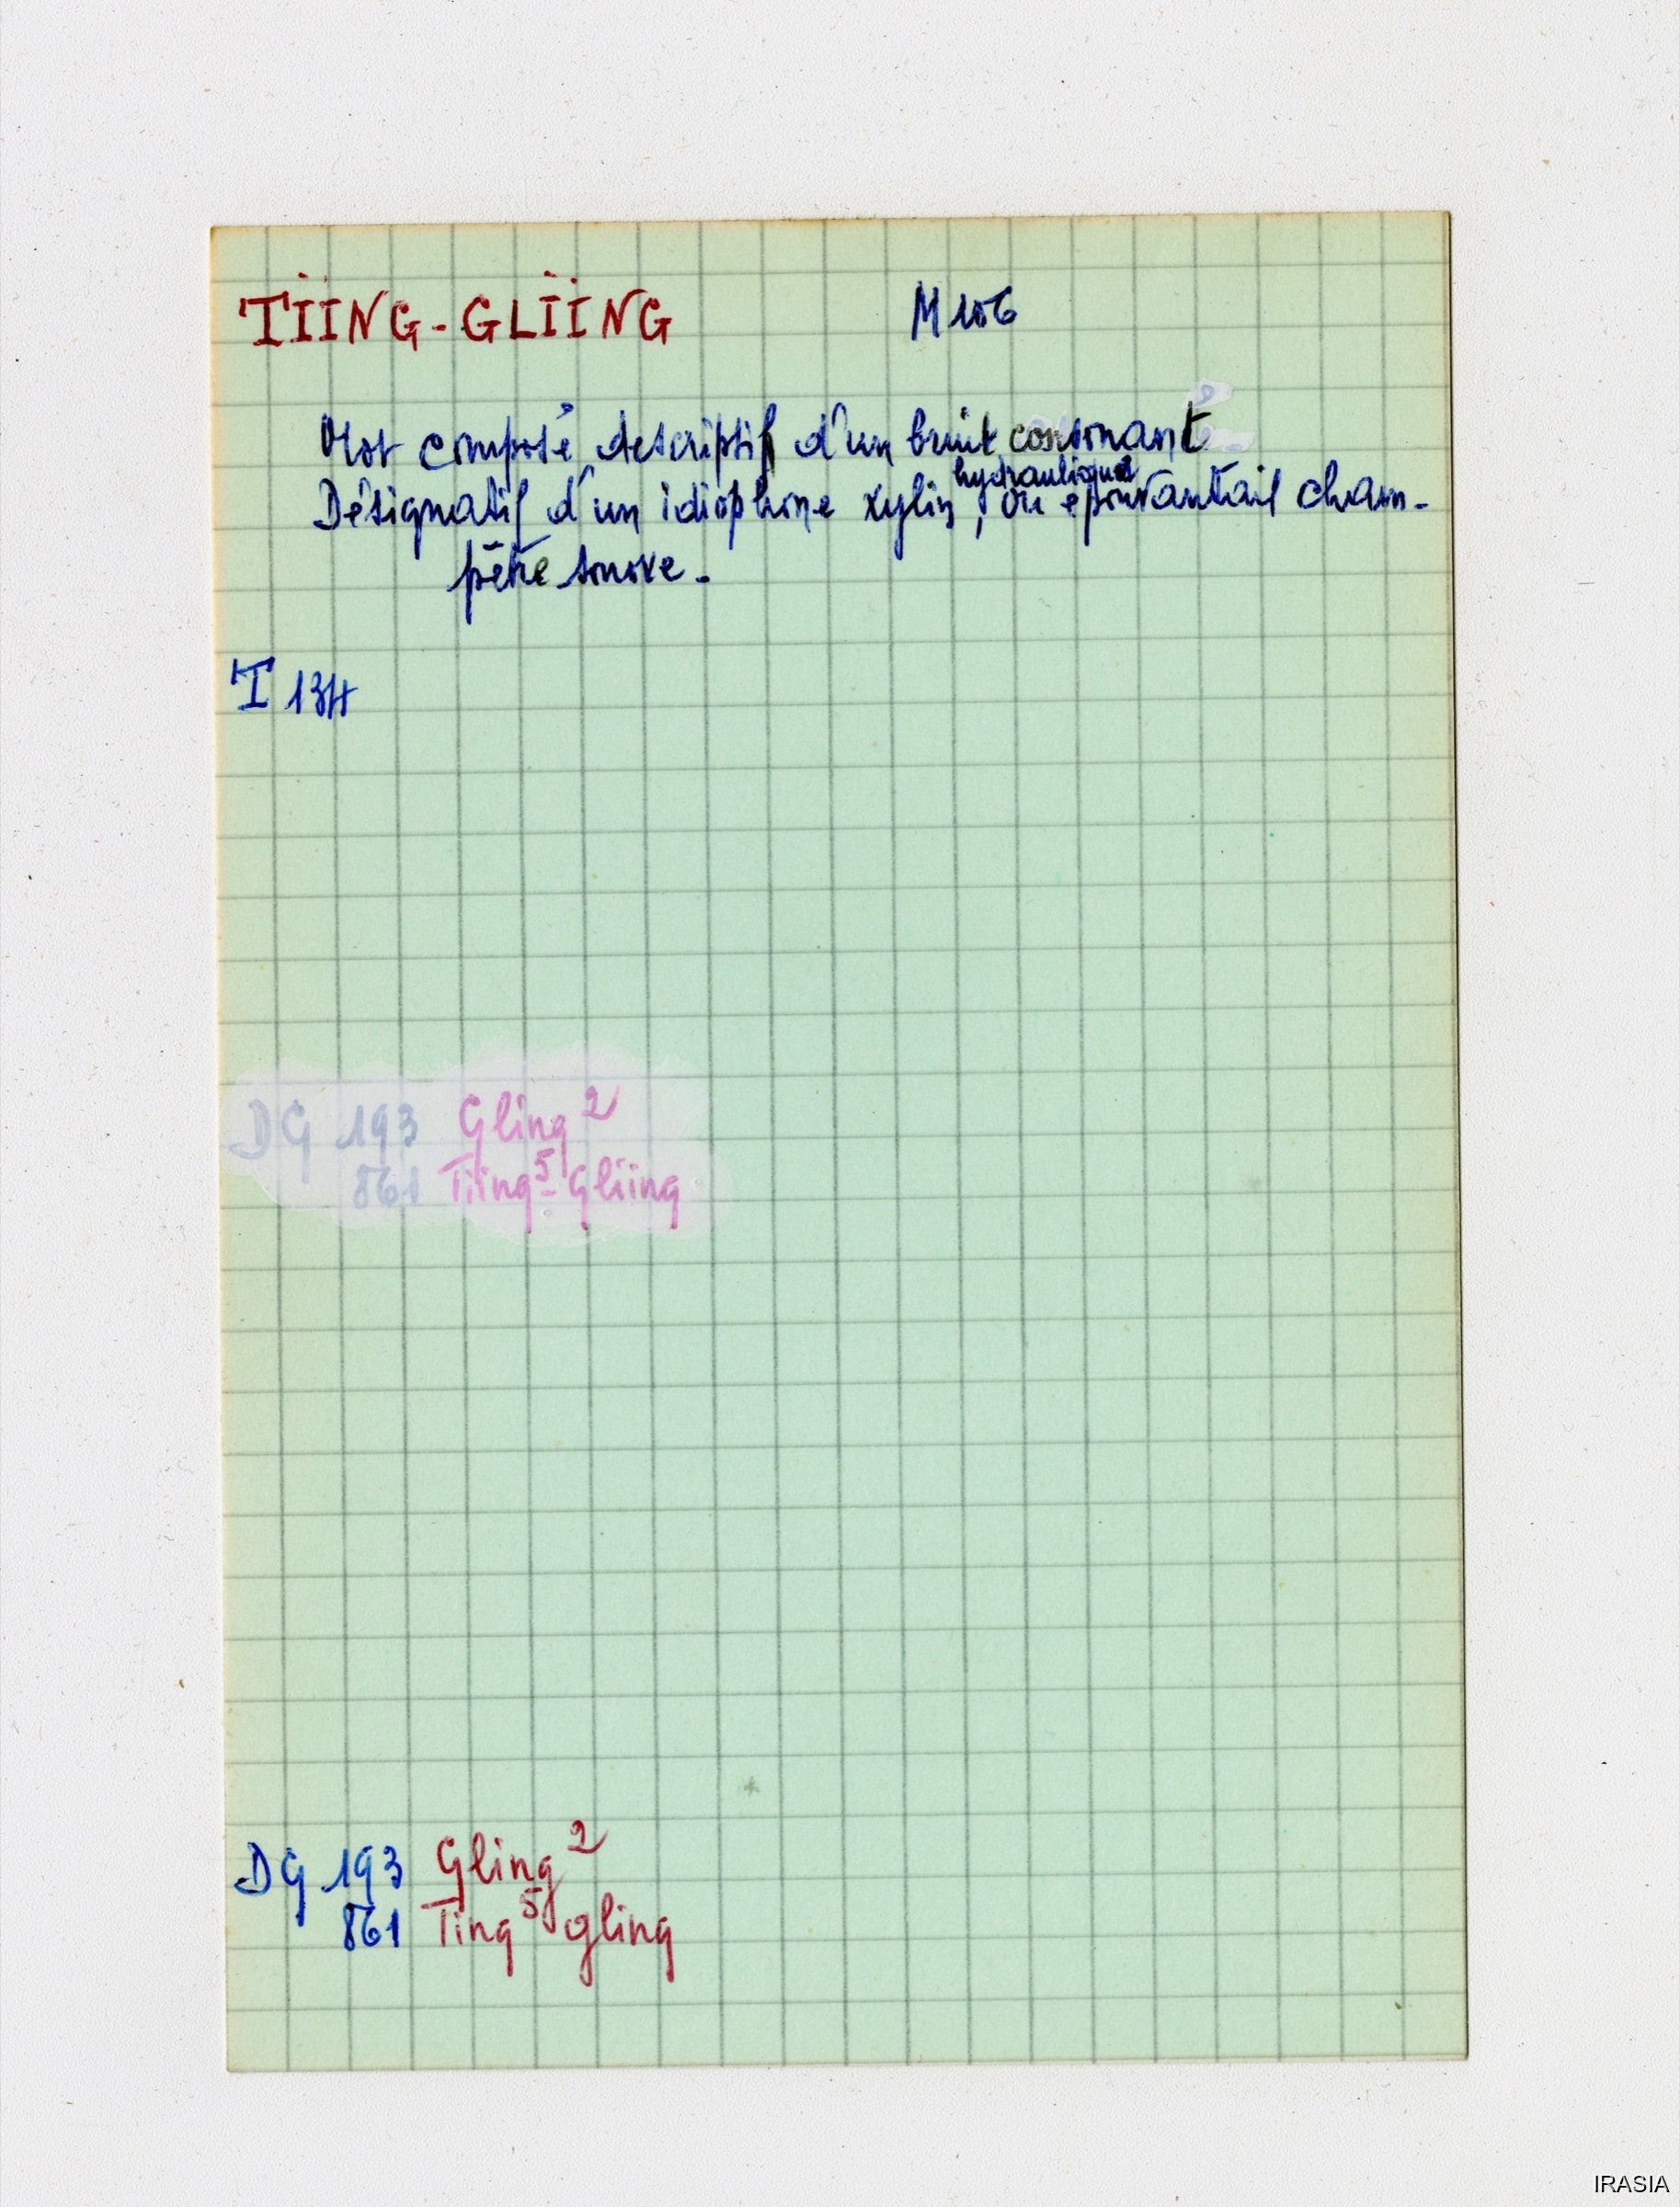 TÏÏNG-GLÏÏNG M 106
Mot composé descriptif d'un bruit consonant
Désignatif d'un idiophone xylin hydraulique, ou épouvantail cham-
pêtre sonore.
T 134
DG 193 Gling 2
861 Tiing 5-Gliing
DG 193 Gling 2
861 Ting 5 gling
IRASIA